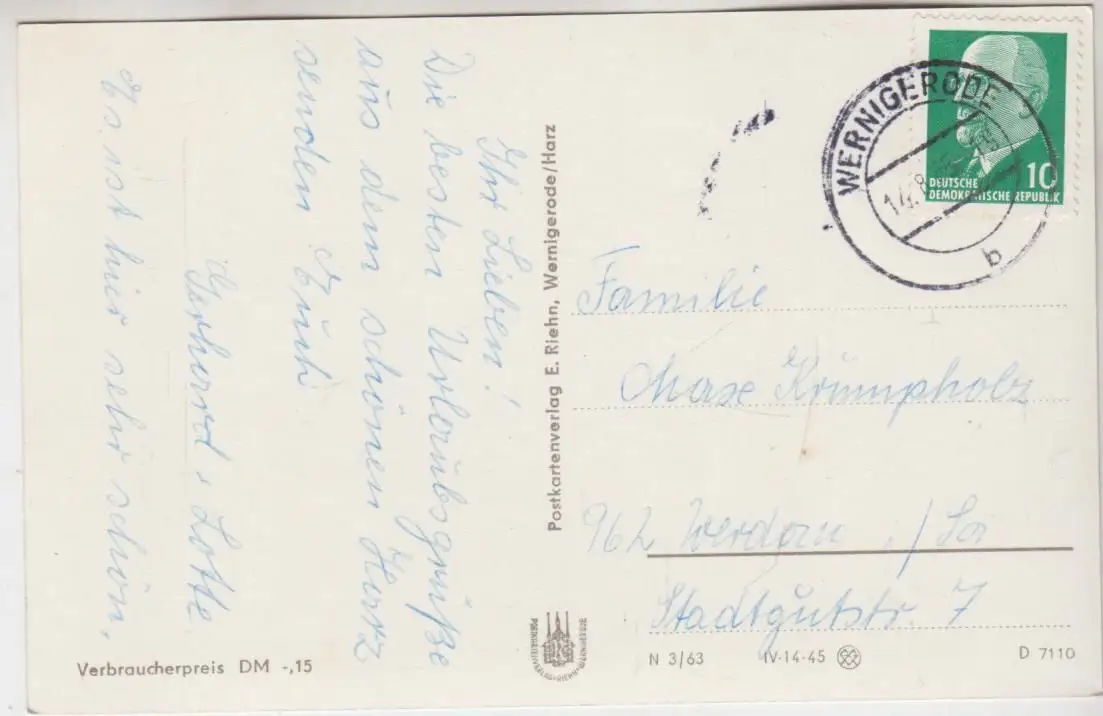 Ihr Lieben!
Die besten Urlaubsgrüße
aus dem schönen Harz
senden Euch
Gerhard + Lotte
Es ist hier sehr schön,
Postkartenverlag E. Riehn, Wernigerode/Harz
WERNIGERODE
b
10
DEUTSCHE
DEMOKRATISCHE REPUBLIK
Familie
Max Krumpholz
962 Werdau /Sa
Stadtgutstr. 7
Verbraucherpreis DM -,15
POSTKARTENVERLAG·RIEHN·WERNIGERODE
N 3/63 IV-14-45 D 7110